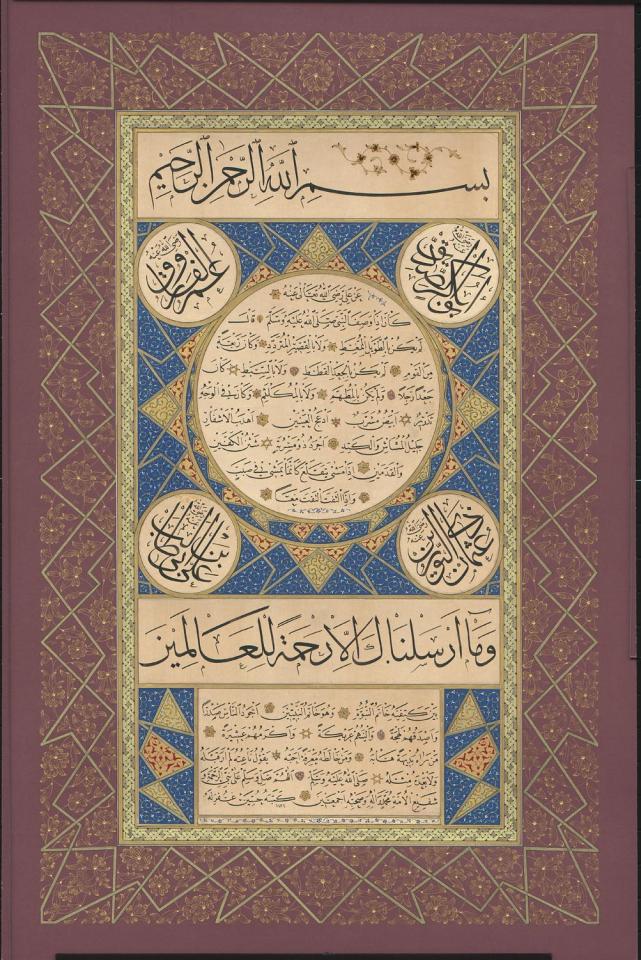 بسم الله الرحمن الرحيم
عن علي رضي الله تعالى عنه
كان إذا وصف النبي صلى الله عليه وسلم قال
لم يكن بالطويل الممغط ولا بالقصير المتردد وكان ربعة
من القوم لم يكن بالجعد القطط ولا بالسبط كان
جعدا رجلا ولم يكن بالمطهم ولا بالمكلثم وكان في الوجه
تدوير ابيض مشرب ادعج العينين أهدب الاشفار
جليل المشاش والكتد اجرد ذو مسربة شثن الكفين
والقدمين إذا مشى يتقلع كأنما يمشي في صبب
وإذا التفت التفت معا
وما أرسلناك الا رحمة للعالمين
بين كتفيه خاتم النبوة وهو خاتم النبيين أجود الناس صدرا
وأصدقهم لهجة وألينهم عريكة وأكرمهم عشيرة
من رآه بديهة هابه ومن خالطه معرفة أحبه يقول ناعته لم أر قبله
ولا بعده مثله صلى الله عليه وسلم اللهم صل وسلم على نبي الرحمة و
شفيع الامة محمد وآله وصحبه أجمعين كتبه